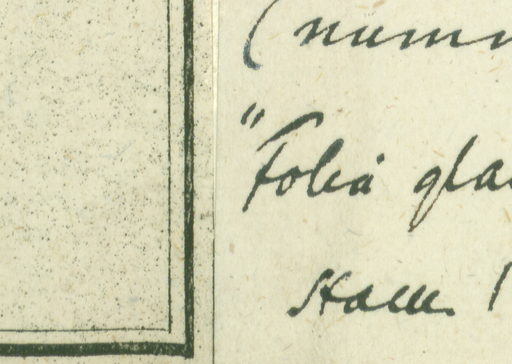 (numm
"Folia gla
Ham. 1